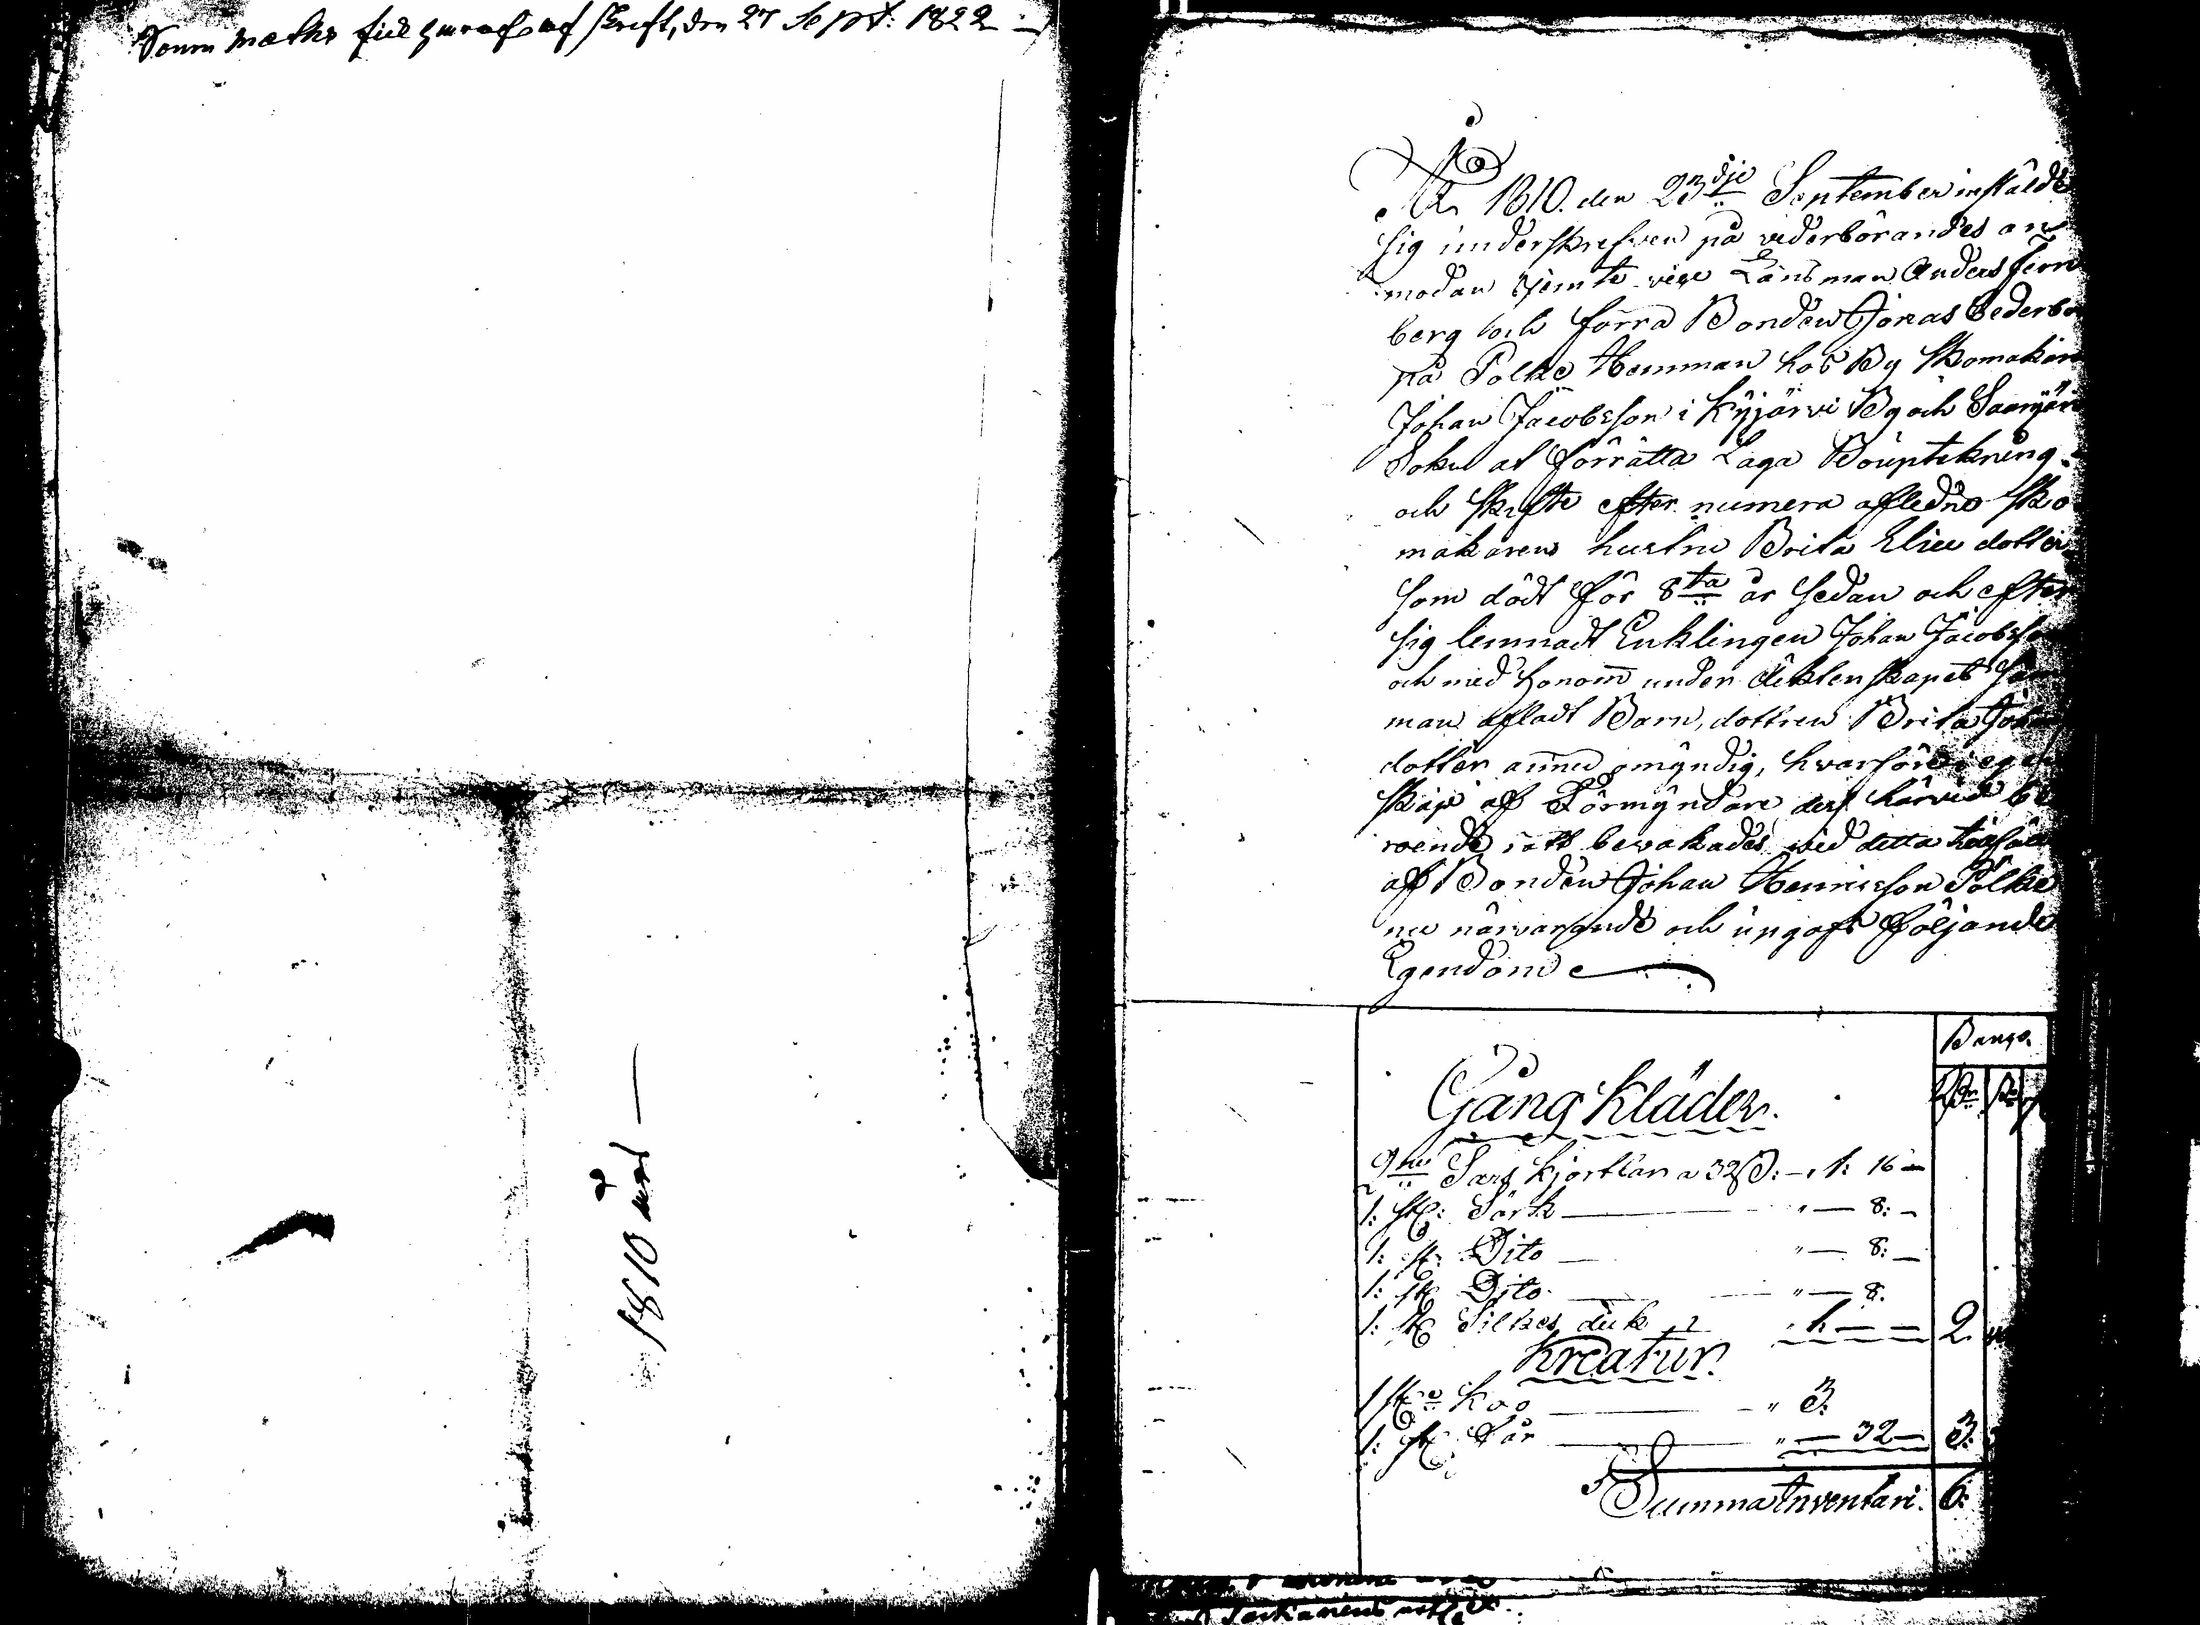 den 27 Sept: 1822
1810 års
År 1810. den 23dje September instälde
sig underskrefven på vederbörandes an
modan jemte vice Länsman Anders Fern
berg och förra Bonden Jonas Cederbe
på Polke Hemman hos By skomakaren
Johan Jacobsson i Kyjärvi By och Saarijärvi
Sokn at förrätta Laga Bouptekning
och skifte efter numera aflednō sko
makarens hustru Brita Elie dotter
som dödt för 8ta år sedan och efter
sig lemnadt Enklingen Johan Jacobsson
och med honom under äktenskapet sam
man afladt Barn, dottren Brita Johans
dotter ännu omyndig, hvarföre i egen
skap af Förmyndare dess härvid be
roende rätt bevakades vid detta tillfälle
af Bonden Johan Henricsson Polke
nu närvarande och upgafs följande
Egendom
Banco.
Gång Kläder.
2ne Sars kjortlar a 32 ß: — 1: 16 —
1: st: Särk — " — 8: —
1: st: Dito — " — 8: —
1: st: Dito — " — 8.
1: st Silkes duk " 1: — — 2
Kreatur.
1 st: Koo — " 3:
1: st: Får — " — 32 — 3:
Summa Inventari. 6: